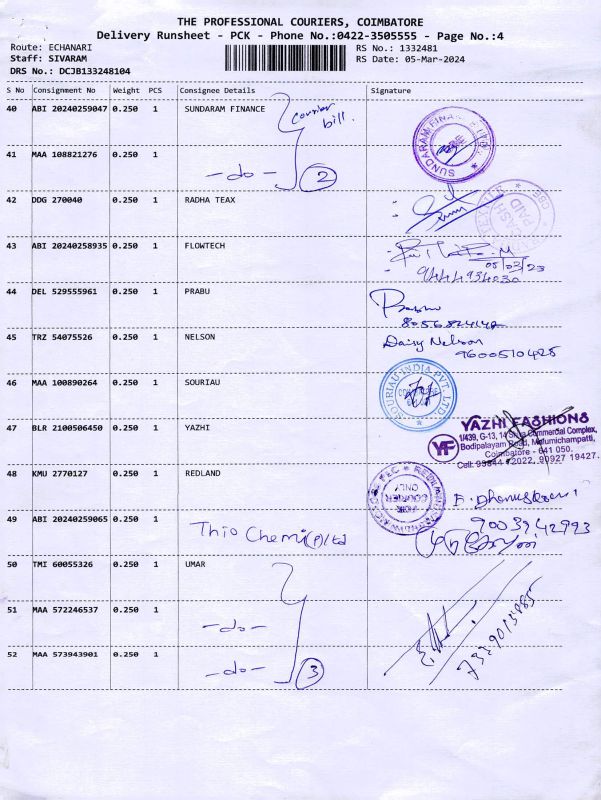 THE PROFESSIONAL COURIERS, COIMBATORE
Delivery Runsheet - PCK - Phone No.:0422-3505555 - Page No.:4
Route: ECHANARI
RS No.: 1332481
Staff: SIVARAM
RS Date: 05-Mar-2024
DRS No.: DCJB133248104
S No Consignment No Weight PCS Consignee Details Signature
40 ABI 20240259047 0.250 1 SUNDARAM FINANCE
Courier bill.
SUNDARAM FINANCE
41 MAA 108821276 0.250 1
-do- 2
42 DDG 270040 0.250 1 RADHA TEAX
CASH PAID
43 ABI 20240258935 0.250 1 FLOWTECH
05/03/23
44 DEL 529555961 0.250 1 PRABU
Prabu
45 TRZ 54075526 0.250 1 NELSON
Daisy Nelson
9600510425
46 MAA 100890264 0.250 1 SOURIAU
SOURIAU INDIA PVT. LTD.
47 BLR 2100506450 0.250 1 YAZHI
YAZHI FASHIONS
YF
1/439, G-13, Commercial Complex,
Bodipalayam Road, Malumichampatti,
Coimbatore - 641 050.
Cell: 72022, 90927 19427.
48 KMU 2770127 0.250 1 REDLAND
FOR COURIER ONLY
49 ABI 20240259065 0.250 1 Thio Chemi(P)ltd
9003942993
50 TMI 60055326 0.250 1 UMAR
51 MAA 572246537 0.250 1 -do-
52 MAA 573943901 0.250 1 -do- 3